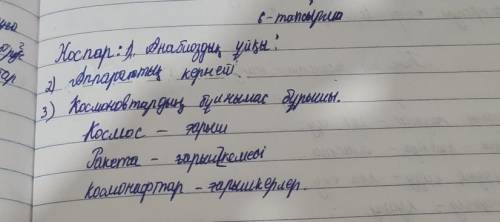 6-тапсырма
Жоспар: 1. Анабиоздық ұйқы!
2) Аппараттың
3) Космонавтардың бұрышы.
Космос – ғарыш
Ракета – ғарыш кемесі
Космонафттар – ғарышкерлер.